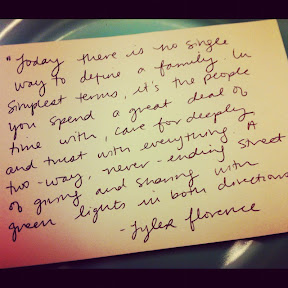 "Today there is no single
way to define a family. In
simplest terms, it's the people
you spend a great deal of
time with, care for deeply
and trust with everything. A
two-way, never-ending street
of giving and sharing with
green lights in both directions
-Tyler Florence